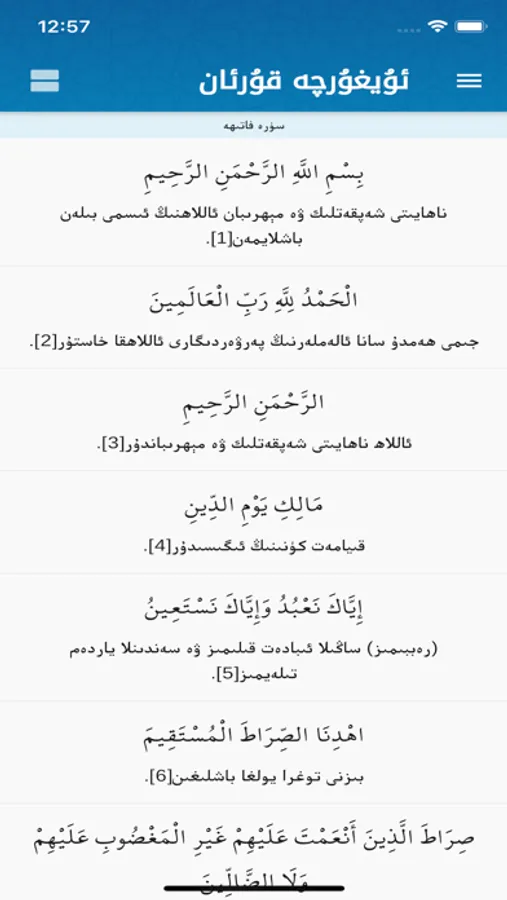 12:57
ئۇيغۇرچە قۇرئان
سۈرە فاتىھە
بِسْمِ اللَّهِ الرَّحْمَنِ الرَّحِيمِ
ناھايىتى شەپقەتلىك ۋە مېھرىبان ئاللاھنىڭ ئىسمى بىلەن
باشلايمەن[1].
الْحَمْدُ لِلَّهِ رَبِّ الْعَالَمِينَ
جىمى ھەمدۇ سانا ئالەملەرنىڭ پەرۋەردىگارى ئاللاھقا خاستۇر[2].
الرَّحْمَنِ الرَّحِيمِ
ئاللاھ ناھايىتى شەپقەتلىك ۋە مېھرىباندۇر[3].
مَالِكِ يَوْمِ الدِّينِ
قىيامەت كۈنىنىڭ ئىگىسىدۇر[4].
إِيَّاكَ نَعْبُدُ وَإِيَّاكَ نَسْتَعِينُ
(رەببىمىز) ساڭىلا ئىبادەت قىلىمىز ۋە سەندىنلا ياردەم
تىلەيمىز[5].
اهْدِنَا الصِّرَاطَ الْمُسْتَقِيمَ
بىزنى توغرا يولغا باشلىغىن[6].
صِرَاطَ الَّذِينَ أَنْعَمْتَ عَلَيْهِمْ غَيْرِ الْمَغْضُوبِ عَلَيْهِمْ
وَلَا الضَّالِّينَ